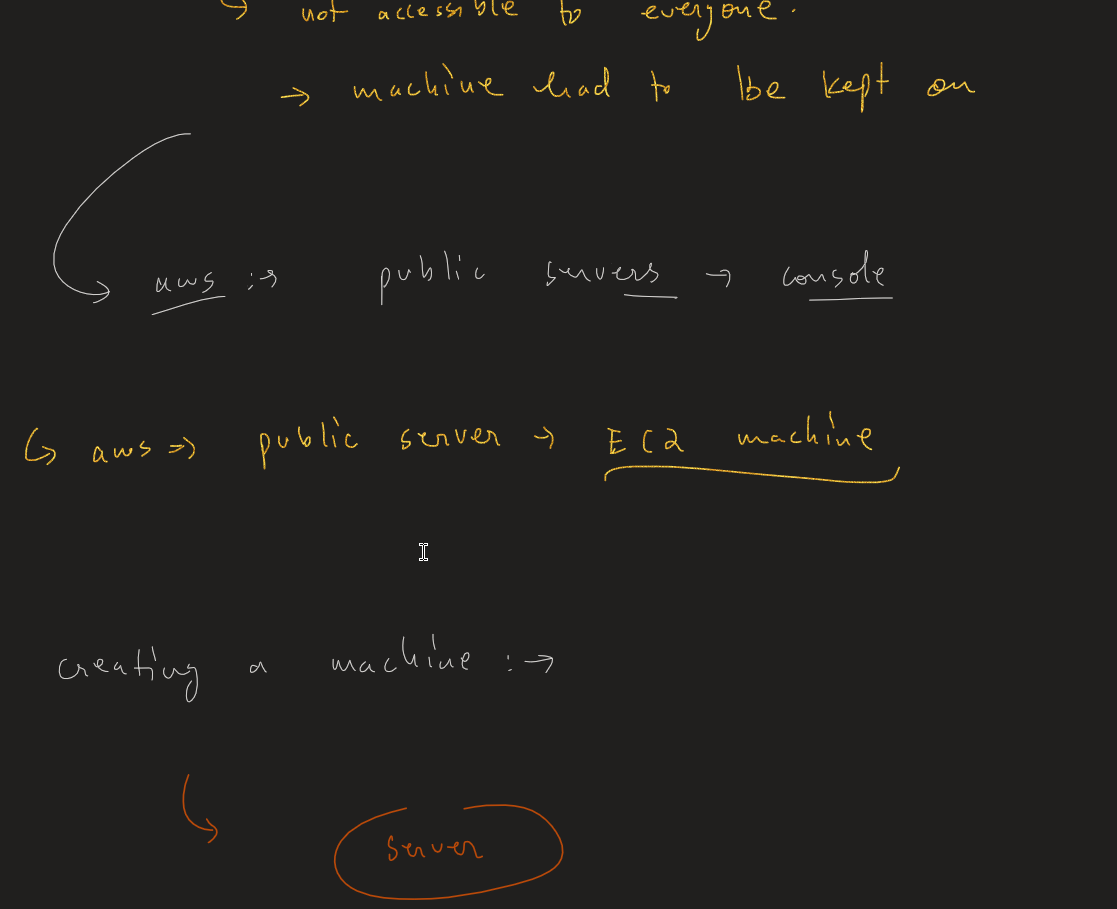 ↳ not accessible to everyone.
→ machine had to be kept on
aws :→ public servers → console
↳ aws => public server → EC2 machine
creating a machine :→
↳ server